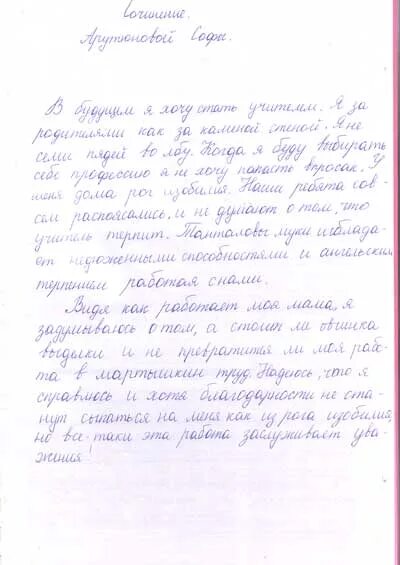 Сочинение.
Арутюновой Софы.
В будущим я хочу стать учителем. Я за
родителями как за каменой стеной. Я не
семи пядей во лбу. Когда я буду выбирать
себе профессию я не хочу попасть впросак. У
меня дома рог изобилия. Наши ребята сов-
сем распоясались и не думают о том, что
учитель терпит. Танталовы муки и облада-
ет недюженными способностями и ангельским
терпением работая снами.
Видя как работает моя мама, я
задумываюсь о том, а стоит ли овчинка
выделки и не превратится ли моя рабо-
та в мартышкин труд. Надеюсь, что я
справлюсь и хотя благодарности не ста-
нут сыпаться на меня как из рога изобилия,
но все-таки эта работа заслуживает ува-
жения!